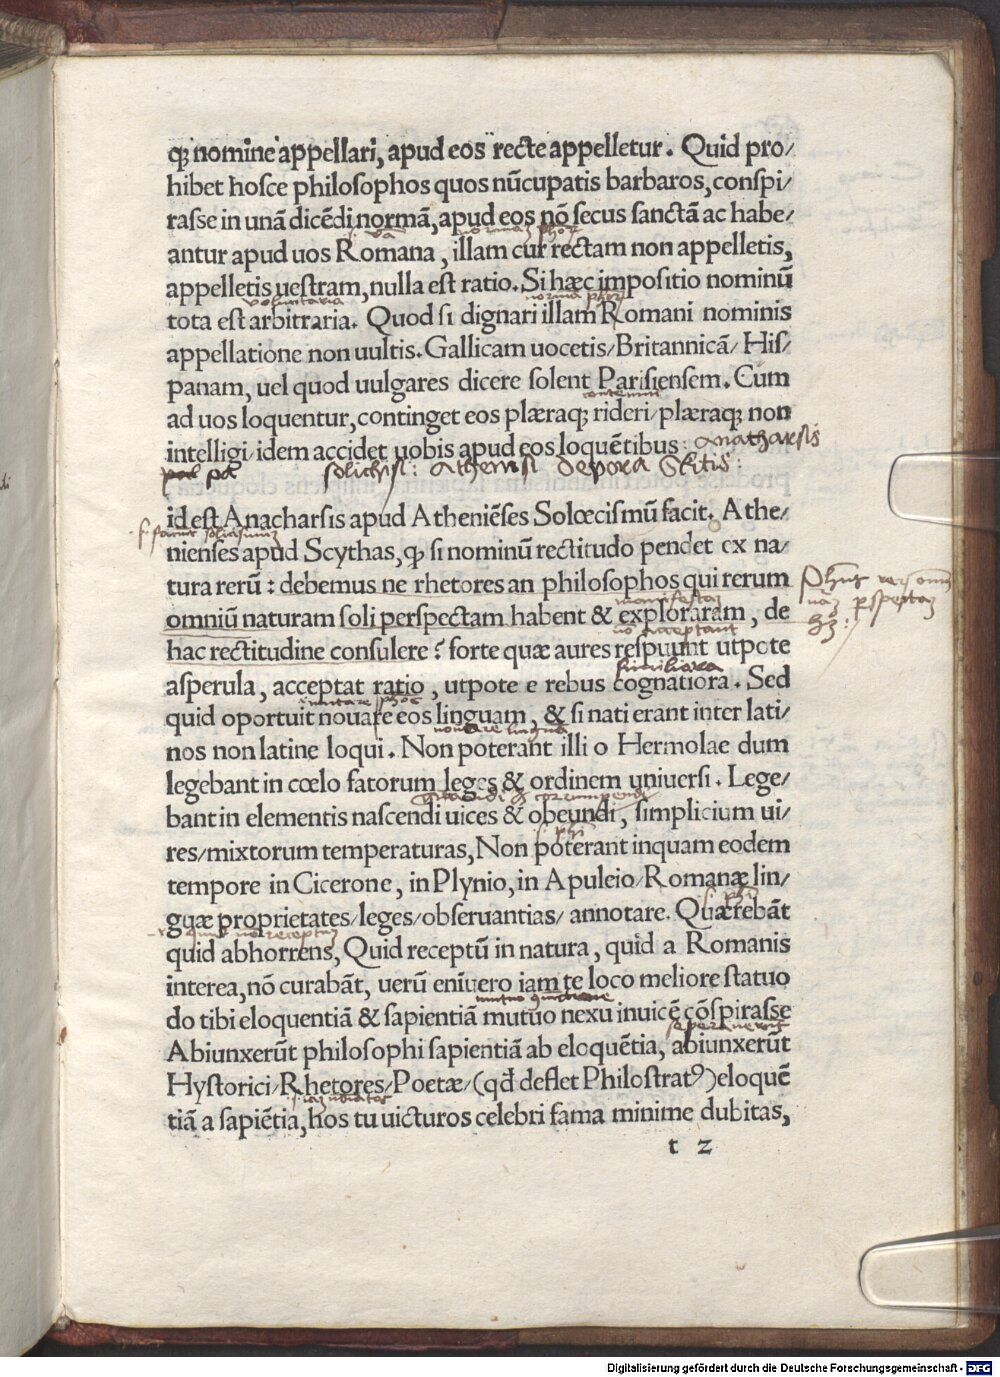 qꝫ nomine appellari, apud eos recte appelletur. Quid pro/
hibet hosce philosophos quos nūcupatis barbaros, conspi/
rasse in unā dicēdi normā, apud eos nō secus sanctā ac habe/
antur apud uos Romana, illam cur rectam non appelletis,
appelletis uestram, nulla est ratio. Si hæc impositio nominū
voluntaria
tota est arbitraria. Quod si dignari illam Romani nominis
appellatione non uultis. Gallicam uocetis/ Britannicā/ His/
panam, uel quod uulgares dicere solent Parisiensem. Cum
ad uos loquentur, continget eos plæraqꝫ rideri/ plæraqꝫ non
intelligi/ idem accidet uobis apud eos loquētibus: anatharsis
solichisi: athensi depora skitis:
id est Anacharsis apud Atheniēses Solœcismū facit. Athe/
nienses apud Scythas, ꝙ si nominū rectitudo pendet ex na/
tura rerū: debemus ne rhetores an philosophos qui rerum
manifestam
omniū naturam soli perspectam habent & exploraram, de
nō acceptant
hac rectitudine consulere? forte quæ aures respuunt utpote
similiora
asperula, acceptat ratio, utpote e rebus cognatiora. Sed
quid oportuit nouare eos linguam, & si nati erant inter lati/
nouare linguā
nos non latine loqui. Non poterant illi o Hermolae dum
legebant in cœlo fatorum leges & ordinem uniuersi. Lege/
bant in elementis nascendi uices & obeundi, simplicium ui/
res/ mixtorum temperaturas, Non poterant inquam eodem
tempore in Cicerone, in Plynio, in Apuleio/ Romanæ lin/
guæ proprietates/ leges/ obseruantias/ annotare. Quærebāt
quid abhorrens, Quid receptū in natura, quid a Romanis
interea, nō curabāt, uerū eniuero iam te loco meliore statuo
do tibi eloquentiā & sapientiā mutuo nexu inuicē cōspirasse
seperauerūt
Abiunxerūt philosophi sapientiā ab eloquētia, abiunxerūt
Hystorici/ Rhetores/ Poetæ/ (qđ deflet Philostratꝰ) eloquē
tiā a sapiētia, hos tu uicturos celebri fama minime dubitas,
t z
Digitalisierung gefördert durch die Deutsche Forschungsgemeinschaft - DFG